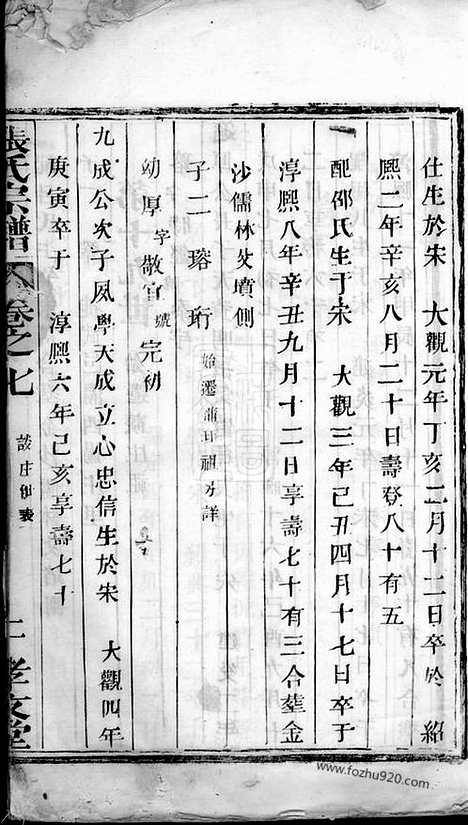 仕生於宋　大觀元年丁亥二月十二日卒於　紹
熙二年辛亥八月二十日壽登八十有五
配邵氏生于宋　大觀三年己丑四月十七日卒于
淳熙八年辛丑九月十二日享壽七十有三合塟金
沙儒林父墳側
子二　瑢　珩　始遷蒲口祖分詳
幼厚　字敬宜　號完初
九成公次子夙學天成立心忠信生於宋　大觀四年
庚寅卒于　淳熙六年己亥享壽七十
張氏宗譜　卷之七　孝友堂
www.fozhu920.com